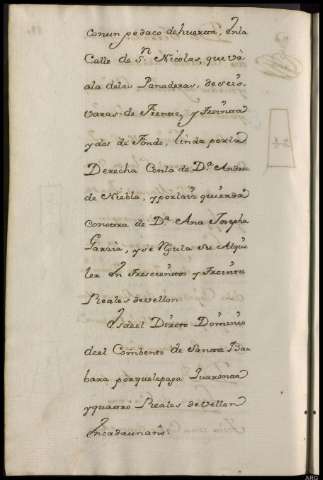 con un pedaco de hueran, En la
Calle de Sn. Nicolas, que và
ala delas Panaderas, de seis
varas de Frente, y treinta
y dos de Fondo, linda por la
Derecha Con la de Dn. Andres
de Niebla, y por la is quierda
con otra de Da. Ana Josepha
Garcia, y se Rgula su Alqui
ler En Trescientos y treinta
Reales de vellon
Es del Directo Dominio
del Combento de Santa Bar
bara por que le paga quarenta
y quatro Reales de vellon
En cada un año.
ARG